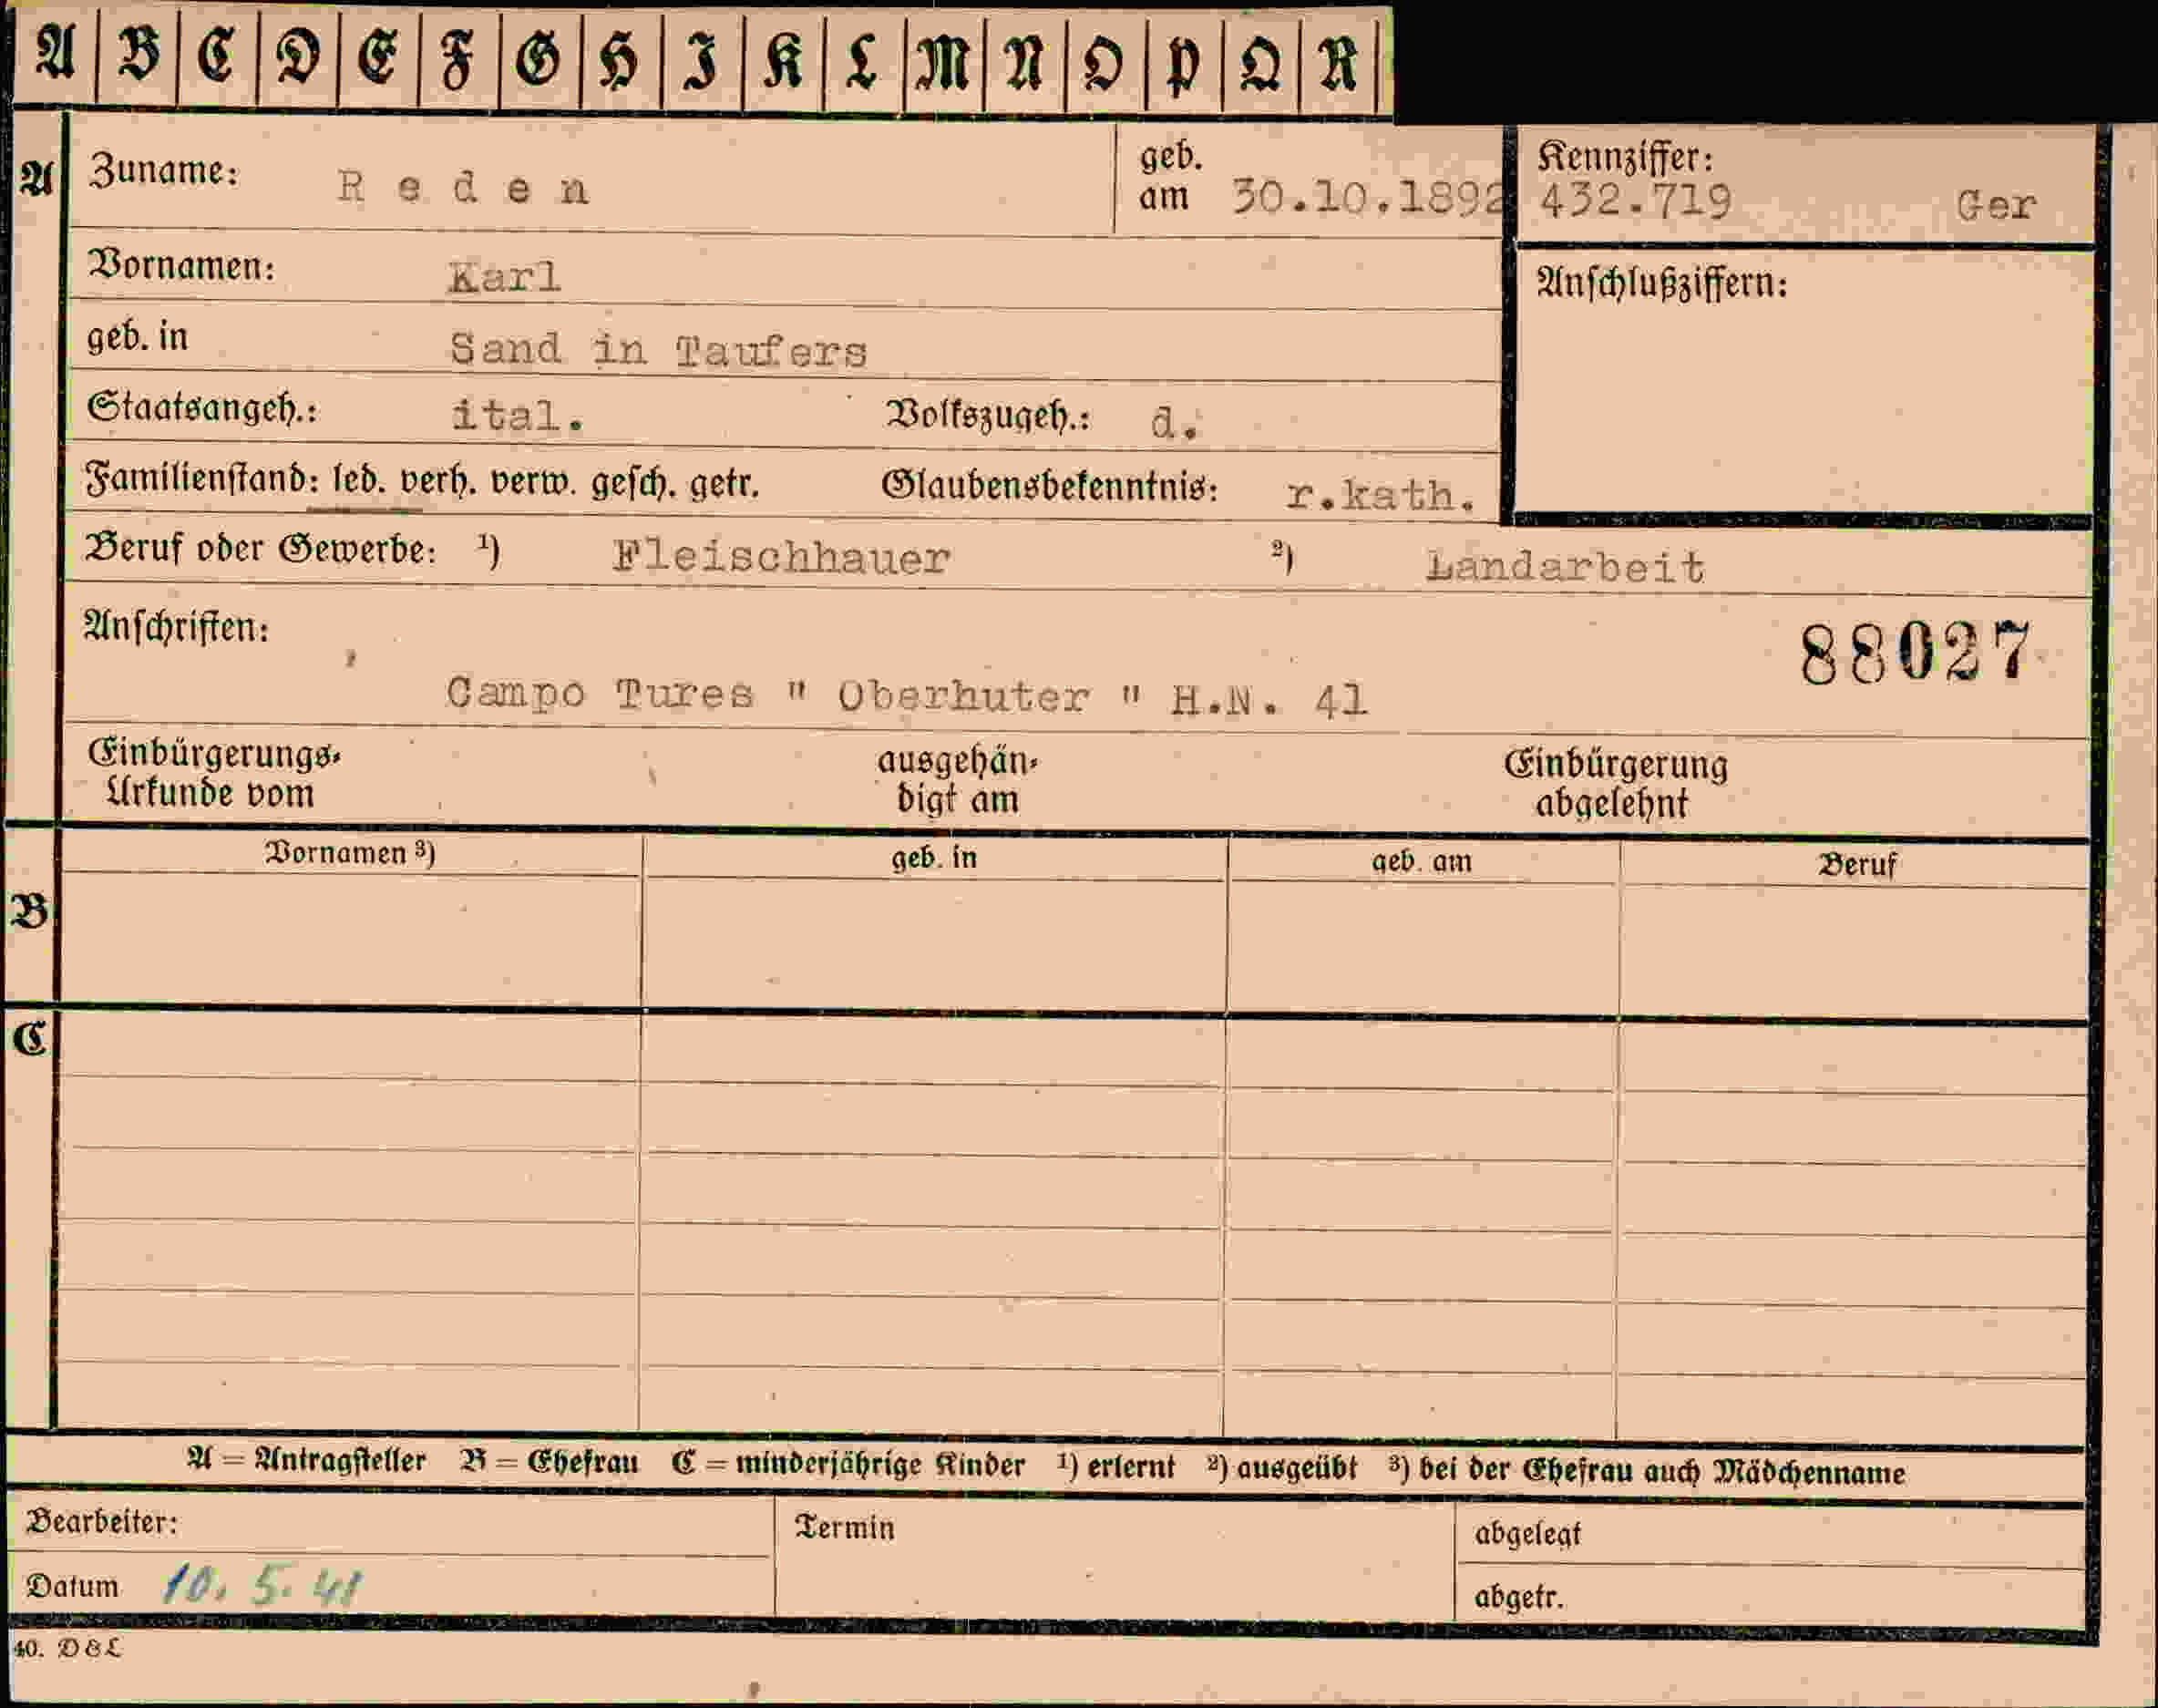 A B C D E F G H I K L M N O P Q R
A Zuname: Reden geb. am 30.10.1892 Kennziffer: 432.719 Ger
Vornamen: Karl Anschlußziffern:
geb. in Sand in Taufers
Staatsangeh.: ital. Volkszugeh.: d.
Familienstand: led. verh. verw. gesch. getr. Glaubensbekenntnis: r.kath.
Beruf oder Gewerbe: ¹) Fleischhauer ²) Landarbeit
Anschriften: 88027
Campo Tures " Oberhuter " H.N. 41
Einbürgerungs- ausgehän- Einbürgerung
Urkunde vom digt am abgelehnt
Vornamen ³) geb. in geb. am Beruf
B
C
A = Antragsteller B = Ehefrau C = minderjährige Kinder ¹) erlernt ²) ausgeübt ³) bei der Ehefrau auch Mädchenname
Bearbeiter: Termin abgelegt
Datum 10. 5. 41 abgetr.
40. D&L